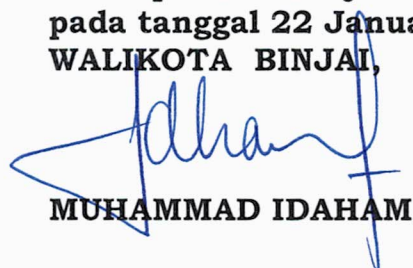 pada tanggal 22 Janua
WALIKOTA BINJAI,
MUHAMMAD IDAHAM